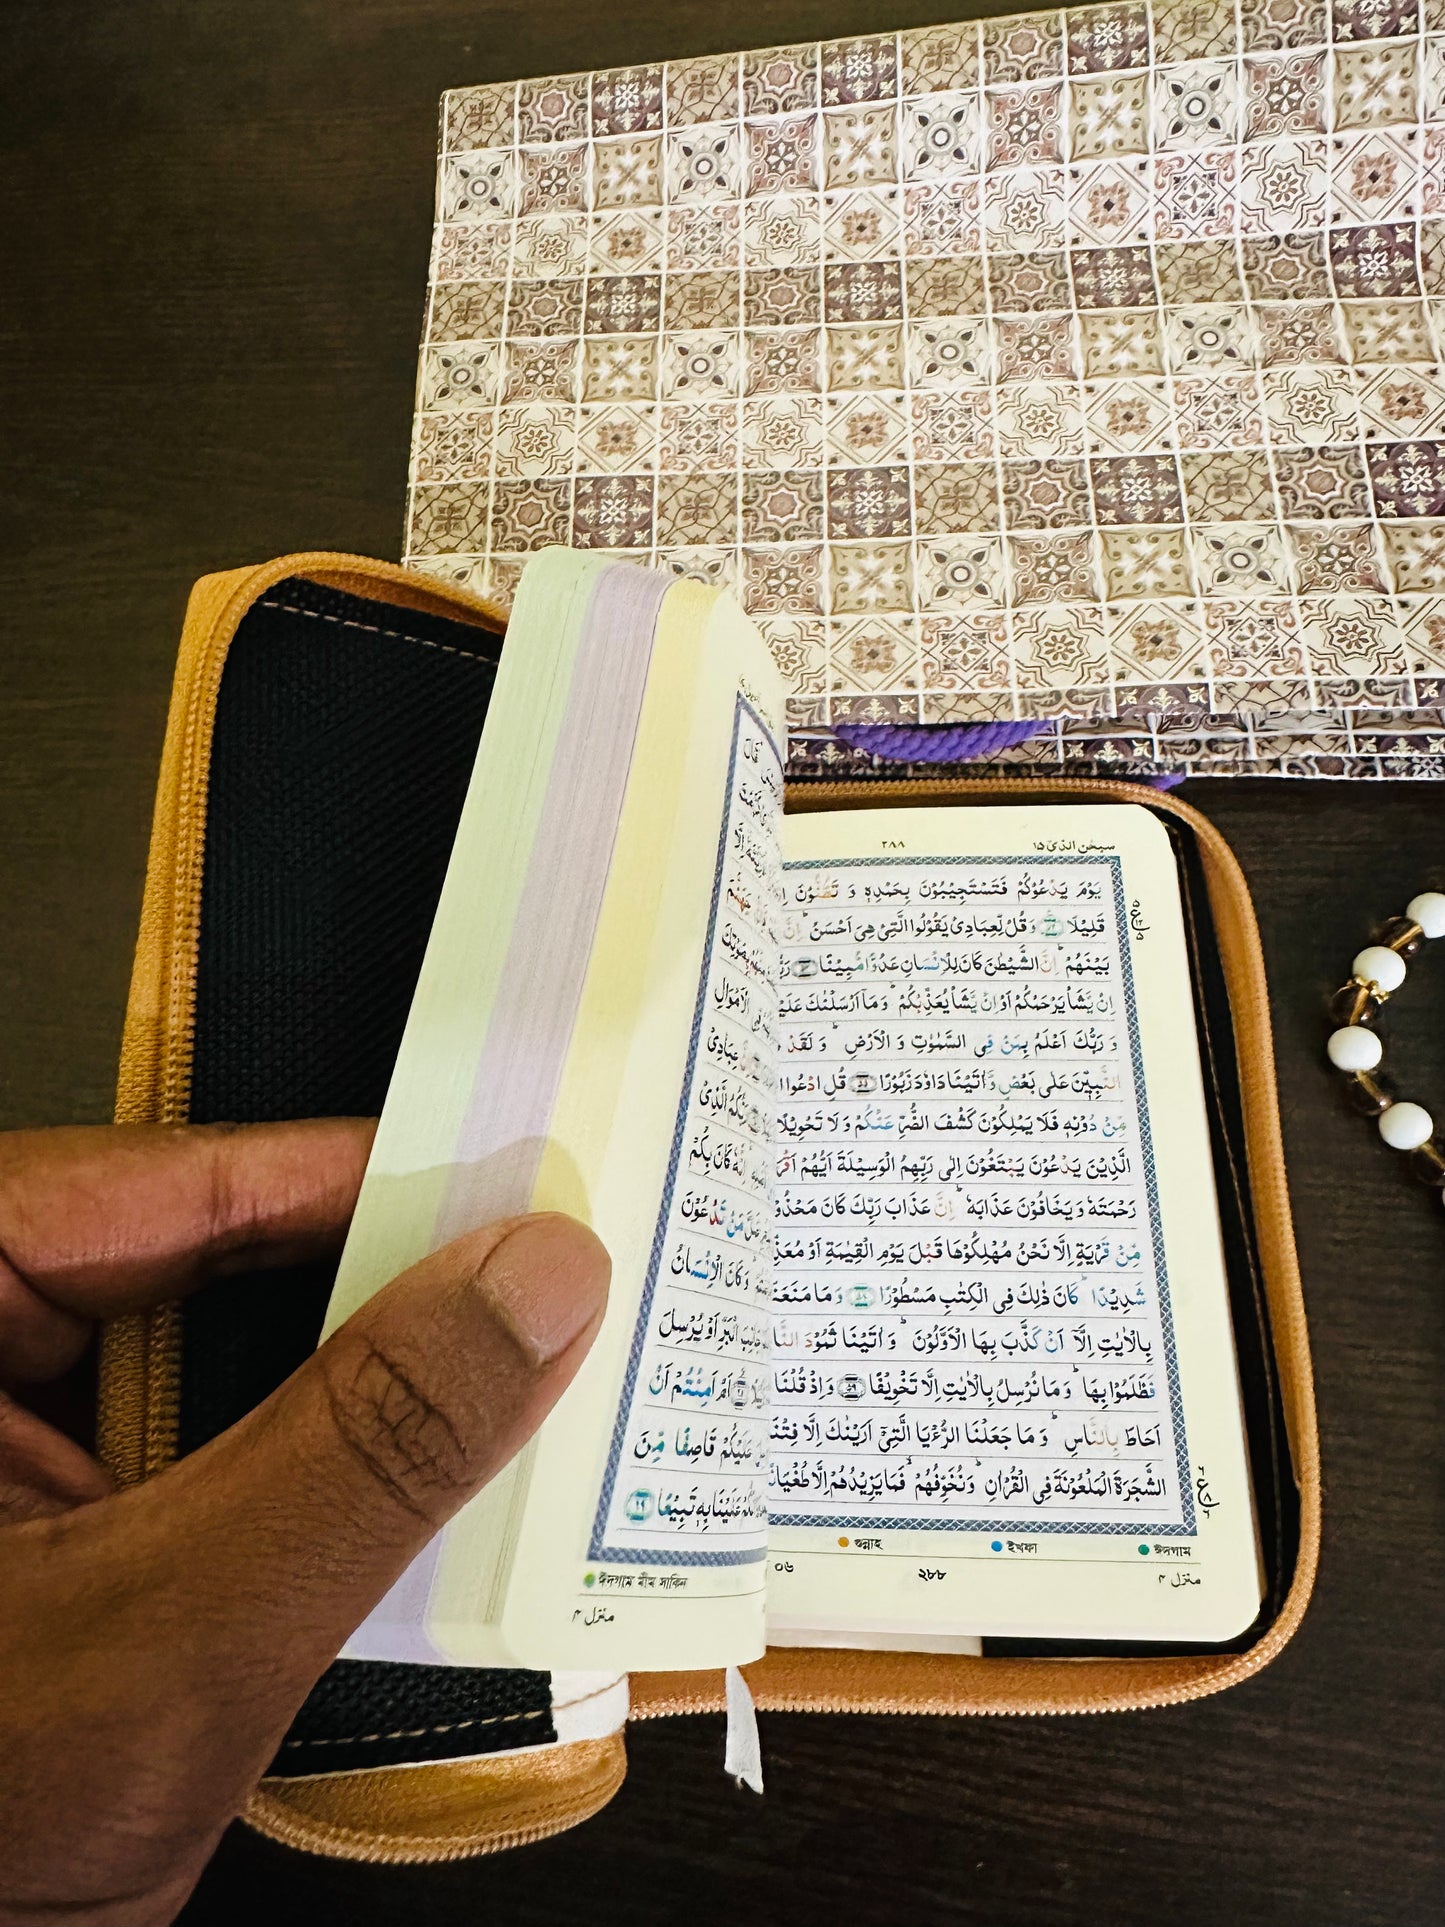 سبحٰن الذی ۱۵ ۲۸۸
يَوْمَ يَدْعُوْكُمْ فَتَسْتَجِيْبُوْنَ بِحَمْدِهٖ وَ تَظُنُّوْنَ
قَلِيْلًا ۵۲ وَقُلْ لِّعِبَادِىْ يَقُوْلُوا الَّتِىْ هِىَ اَحْسَنُ ؕ اِنَّ
بَيْنَهُمْ ؕ اِنَّ الشَّيْطٰنَ كَانَ لِلْاِنْسَانِ عَدُوًّا مُّبِيْنًا ۵۳
اِنْ يَّشَاْ يَرْحَمْكُمْ اَوْ اِنْ يَّشَاْ يُعَذِّبْكُمْ ؕ وَمَاۤ اَرْسَلْنٰكَ
وَ رَبُّكَ اَعْلَمُ بِمَنْ فِى السَّمٰوٰتِ وَ الْاَرْضِ ؕ وَ لَقَدْ
النَّبِيّٖنَ عَلٰى بَعْضٍ وَّاٰتَيْنَا دَاوٗدَ زَبُوْرًا ۵۵ قُلِ ادْعُوا
مِّنْ دُوْنِهٖ فَلَا يَمْلِكُوْنَ كَشْفَ الضُّرِّ عَنْكُمْ وَ لَا تَحْوِيْلًا
الَّذِيْنَ يَدْعُوْنَ يَبْتَغُوْنَ اِلٰى رَبِّهِمُ الْوَسِيْلَةَ اَيُّهُمْ
رَحْمَتَهٗ وَ يَخَافُوْنَ عَذَابَهٗ ؕ اِنَّ عَذَابَ رَبِّكَ كَانَ
مِّنْ قَرْيَةٍ اِلَّا نَحْنُ مُهْلِكُوْهَا قَبْلَ يَوْمِ الْقِيٰمَةِ اَوْ
شَدِيْدًا ؕ كَانَ ذٰلِكَ فِى الْكِتٰبِ مَسْطُوْرًا ۵۸ وَ مَا
بِالْاٰيٰتِ اِلَّاۤ اَنْ كَذَّبَ بِهَا الْاَوَّلُوْنَ ؕ وَ اٰتَيْنَا ثَمُوْدَ
فَظَلَمُوْا بِهَا ؕ وَ مَا نُرْسِلُ بِالْاٰيٰتِ اِلَّا تَخْوِيْفًا ۵۹ وَ اِذْ قُلْنَا
اَحَاطَ بِالنَّاسِ ؕ وَ مَا جَعَلْنَا الرُّءْيَا الَّتِىْۤ اَرَيْنٰكَ اِلَّا
الشَّجَرَةَ الْمَلْعُوْنَةَ فِى الْقُرْاٰنِ ؕ وَنُخَوِّفُهُمْ ۙ فَمَا يَزِيْدُهُمْ اِلَّا
ঈদগাম ইখফা গুন্নাহ
منزل ۴ ২৮৮ ০৬
الْاَمْوَالِ
عِبَادِىْ
رَبُّكُمُ الَّذِىْ
كَانَ بِكُمْ
مَنْ تَدْعُوْنَ
وَكَانَ الْاِنْسَانُ
جَانِبَ الْبَرِّ اَوْ يُرْسِلَ
اَمْ اَمِنْتُمْ اَنْ
عَلَيْكُمْ قَاصِفًا مِّنَ
عَلَيْنَا بِهٖ تَبِيْعًا ۶۹
ঈদগাম মীম সাকিন
منزل ۴